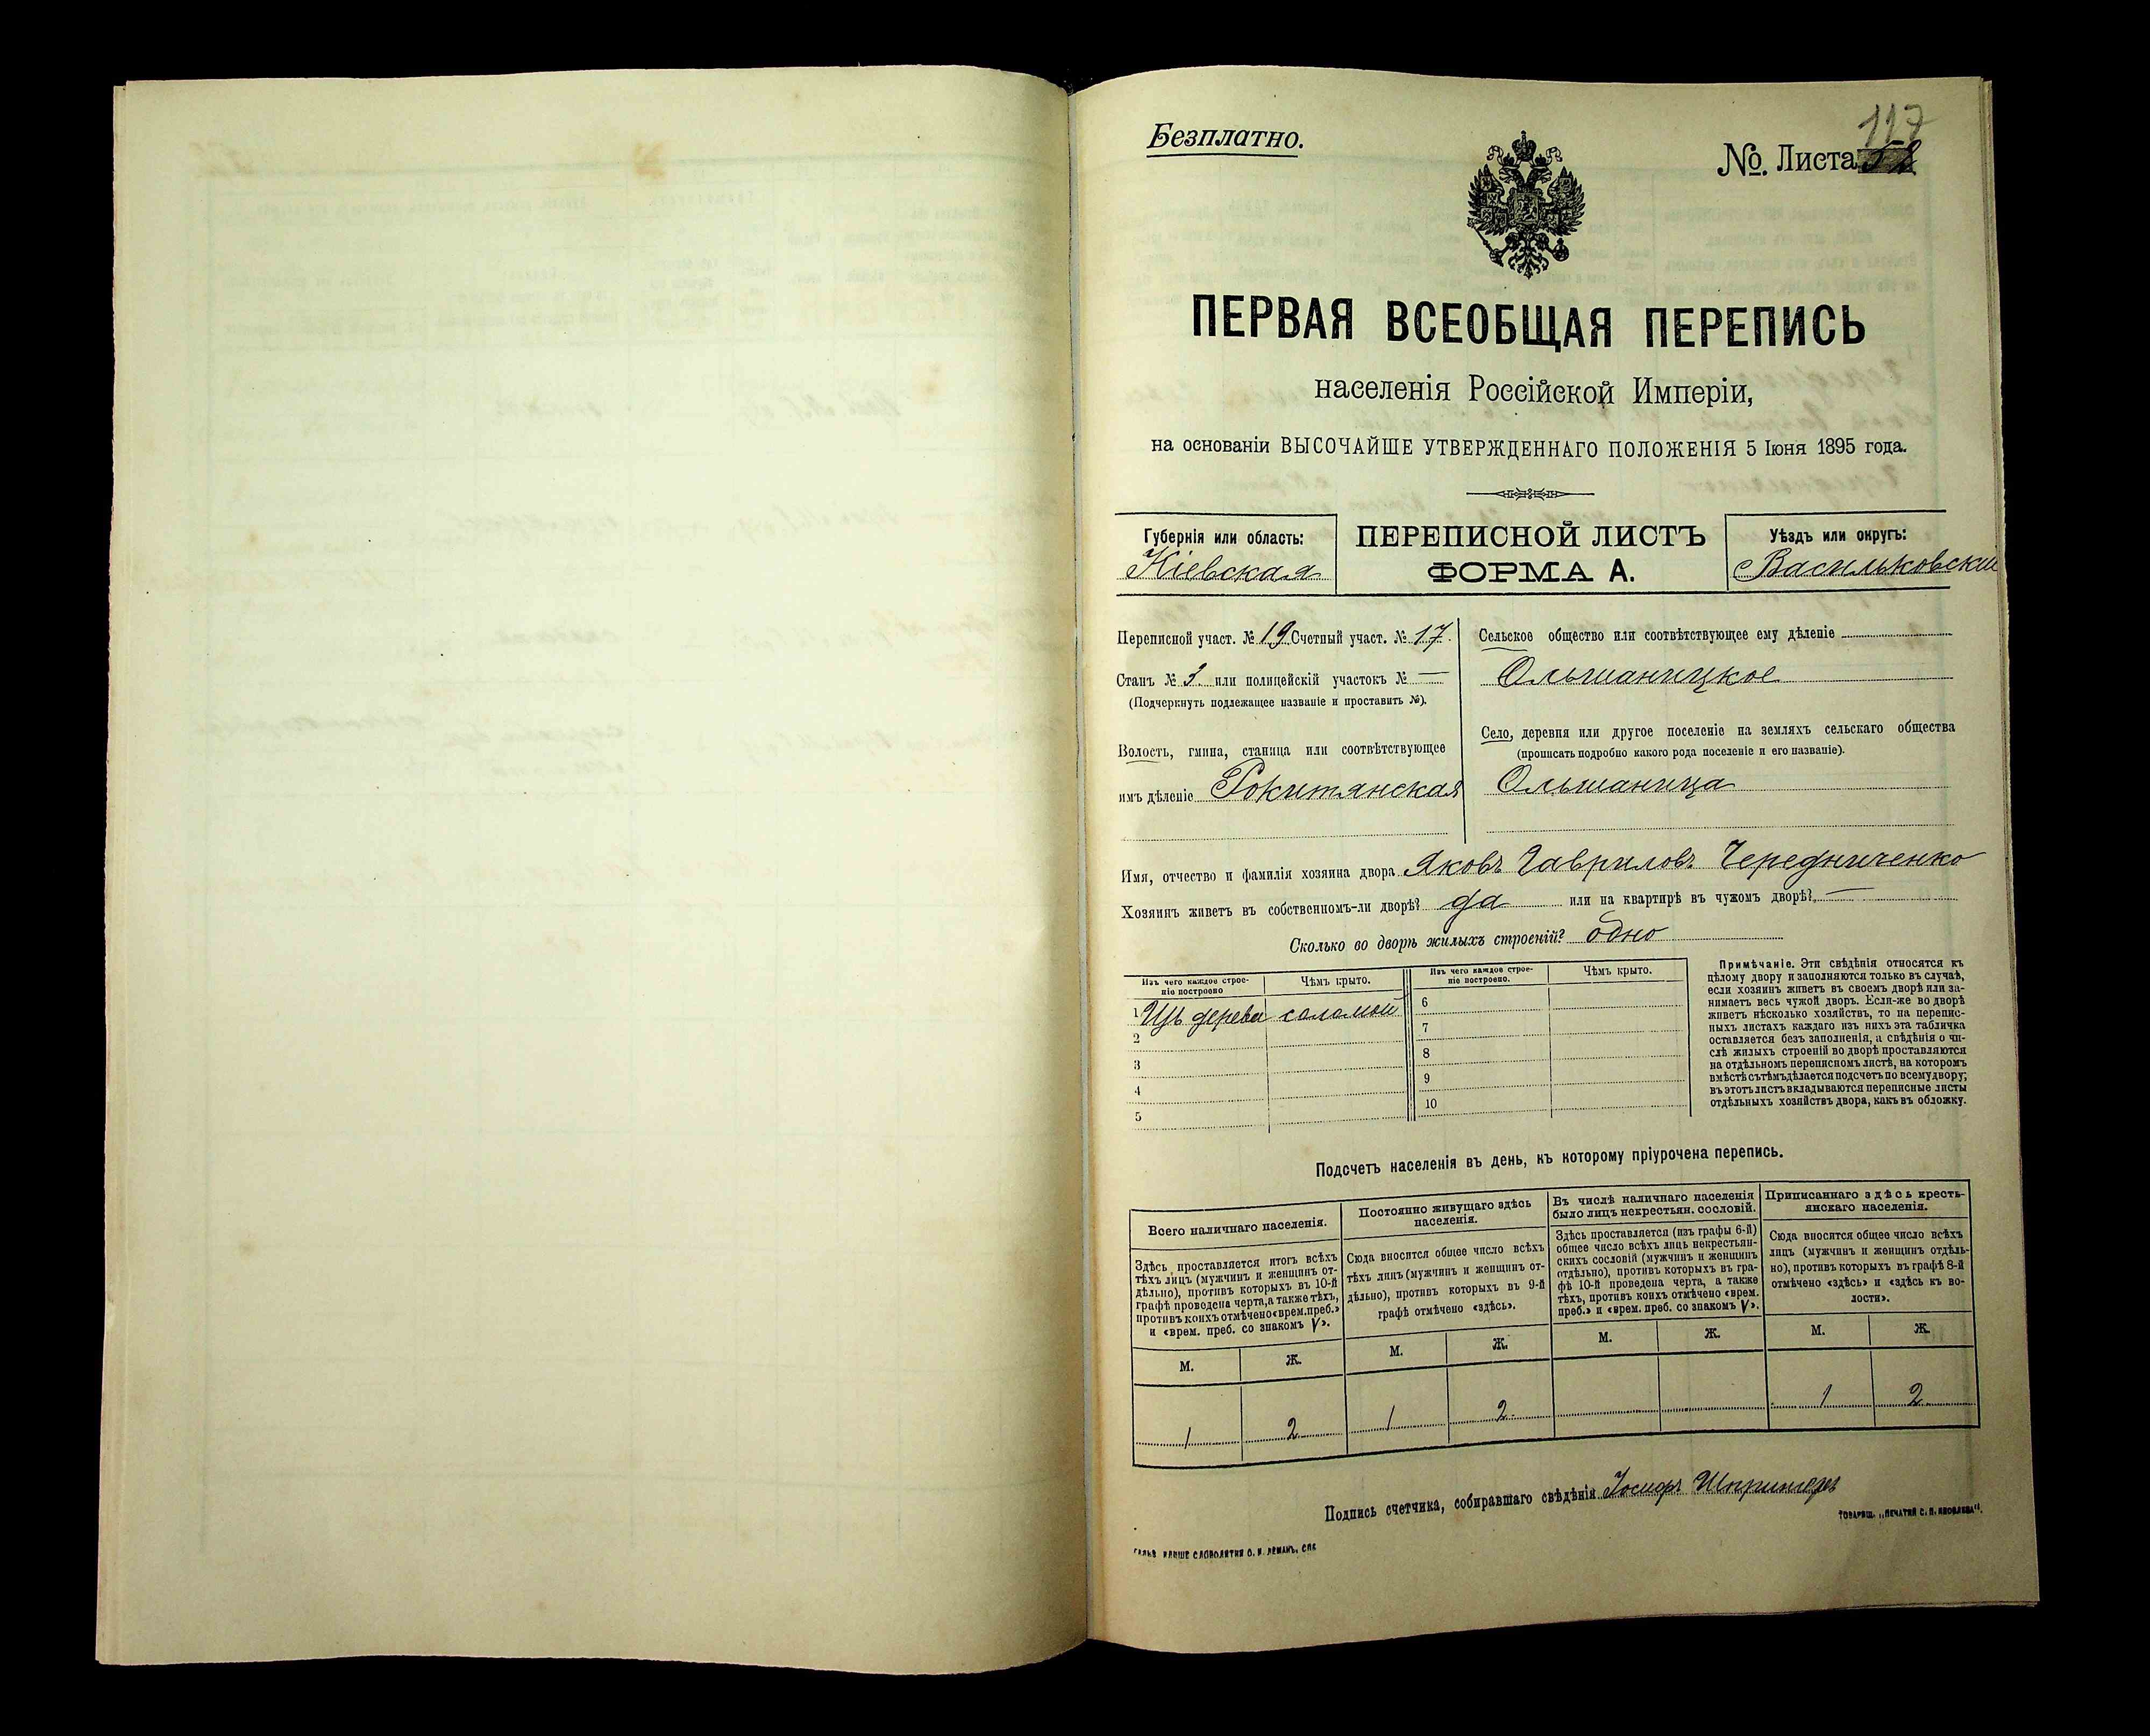 Безплатно.
117
№. Листа 58
ПЕРВАЯ ВСЕОБЩАЯ ПЕРЕПИСЬ
населенія Россійской Имперіи,
на основаніи ВЫСОЧАЙШЕ УТВЕРЖДЕННАГО ПОЛОЖЕНІЯ 5 Іюня 1895 года.
Губернія или область:
Кіевская
ПЕРЕПИСНОЙ ЛИСТЪ
ФОРМА А.
Уѣздъ или округъ:
Васильковскій
Переписной участ. № 19 Счетный участ. № 17.
Станъ № 3 или полицейскій участокъ № —
(Подчеркнуть подлежащее названіе и проставить №).
Волость, гмина, станица или соотвѣтствующее
имъ дѣленіе Рокитянская
Сельское общество или соотвѣтствующее ему дѣленіе
Ольшаницкое
Село, деревня или другое поселеніе на земляхъ сельскаго общества
(прописать подробно какого рода поселеніе и его названіе).
Ольшаница
Имя, отчество и фамилія хозяина двора Яковъ Гавриловъ Чередниченко
Хозяинъ живетъ въ собственномъ-ли дворѣ? да или на квартирѣ въ чужомъ дворѣ? —
Сколько во дворѣ жилыхъ строеній? одно
Изъ чего каждое строе-
ніе построено
Чѣмъ крыто.
1 Изъ дерева соломой
2
3
4
5
Изъ чего каждое строе-
ніе построено.
Чѣмъ крыто.
6
7
8
9
10
Примѣчаніе. Эти свѣдѣнія относятся къ
цѣлому двору и заполняются только въ случаѣ,
если хозяинъ живетъ въ своемъ дворѣ или за-
нимаетъ весь чужой дворъ. Если-же во дворѣ
живетъ нѣсколько хозяйствъ, то на перепис-
ныхъ листахъ каждаго изъ нихъ эта табличка
оставляется безъ заполненія, а свѣдѣнія о чи-
слѣ жилыхъ строеній во дворѣ проставляются
на отдѣльномъ переписномъ листѣ, на которомъ
вмѣстѣ съ тѣмъ дѣлается подсчетъ по всему двору;
въ этотъ листъ вкладываются переписные листы
отдѣльныхъ хозяйствъ двора, какъ въ обложку.
Подсчетъ населенія въ день, къ которому пріурочена перепись.
Всего наличнаго населенія.
Здѣсь проставляется итогъ всѣхъ
тѣхъ лицъ (мужчинъ и женщинъ от-
дѣльно), противъ которыхъ въ 10-й
графѣ проведена черта, а также тѣхъ,
противъ коихъ отмѣчено «врем. преб.»
и «врем. преб. со знакомъ V».
М. Ж.
1 2
Постоянно живущаго здѣсь
населенія.
Сюда вносится общее число всѣхъ
тѣхъ лицъ (мужчинъ и женщинъ от-
дѣльно), противъ которыхъ въ 9-й
графѣ отмѣчено «здѣсь».
М. Ж.
1 2
Въ числѣ наличнаго населенія
было лицъ некрестьян. сословій.
Здѣсь проставляется (изъ графы 6-й)
общее число всѣхъ лицъ некрестьян-
скихъ сословій (мужчинъ и женщинъ
отдѣльно), противъ которыхъ въ гра-
фѣ 10-й проведена черта, а также
тѣхъ, противъ коихъ отмѣчено «врем.
преб.» и «врем. преб. со знакомъ V».
М. Ж.
Приписаннаго здѣсь кресть-
янскаго населенія.
Сюда вносится общее число всѣхъ
лицъ (мужчинъ и женщинъ отдѣль-
но), противъ которыхъ въ графѣ 8-й
отмѣчено «здѣсь» и «здѣсь къ во-
лости».
М. Ж.
1 2
Подпись счетчика, собиравшаго свѣдѣнія Іосифъ Шпрингеръ
ТОВАРИЩ. „ПЕЧАТНЯ С. П. ЯКОВЛЕВА".
СЛОВОЛИТНИ О. И. ЛЕМАНЪ, СПБ